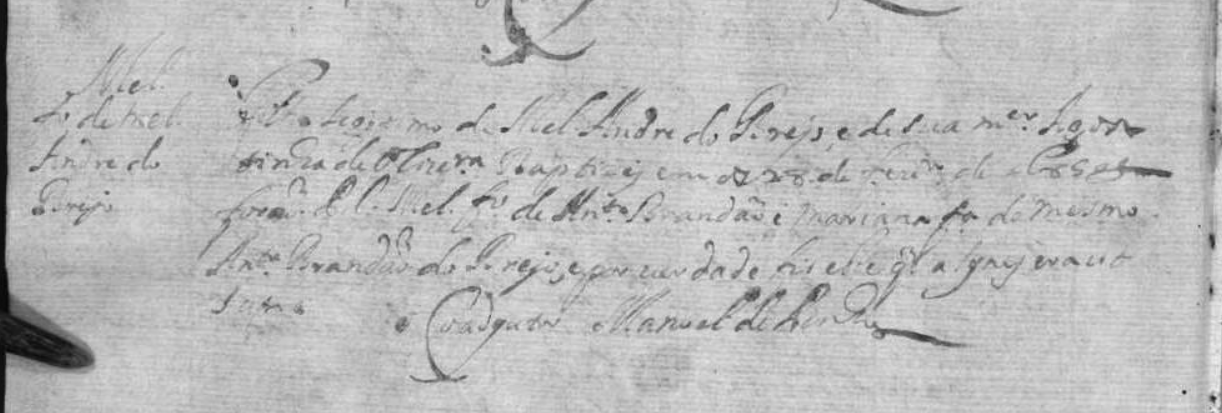 Mel.
fo de Mel
Andre do
Brejo
Fo legitimo de Mel Andre do Brejo, e de sua mer Agos
tinha de Oliura Baptizej em os 28 de feurro de
forão P. P. Mel. fo de Anto Brandão e Mariana fa do mesmo
Anto Brandão do Brejo, e por uerdade fis este q asyney era ut
supra
o Coadyutor Manoel de